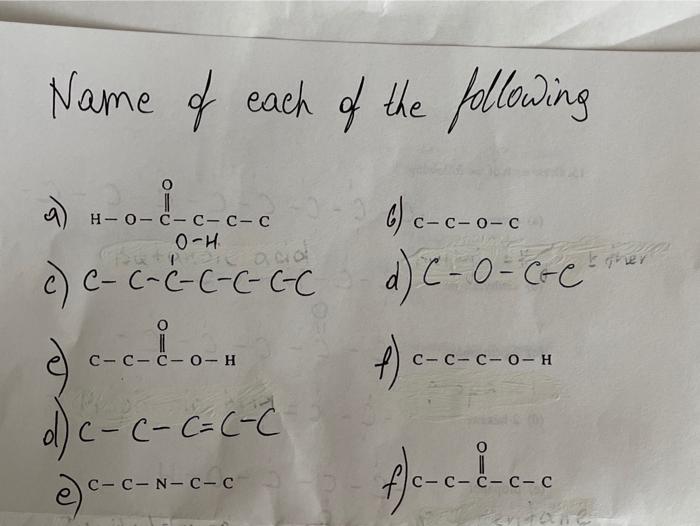 Name of each of the following
O
||
a) H-O-C-C-C-C
b) C-C-O-C
O-H
c) C-C-C-C-C-C-C
d) C-O-C-C
O
||
e) C-C-C-O-H
f) C-C-C-O-H
d) C-C-C=C-C
O
||
e) C-C-N-C-C
f) C-C-C-C-C